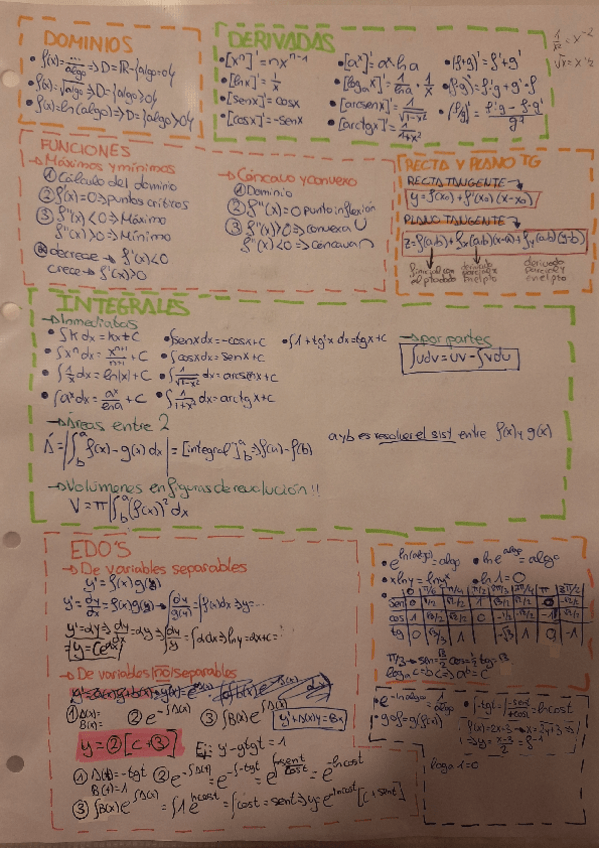 DOMINIOS
• f(x) = .../algo => D = R - {algo = 0}
• f(x) = √algo => D = {algo ≥ 0}
• f(x) = ln(algo) => D = {algo > 0}
DERIVADAS
• [xⁿ]' = nxⁿ⁻¹
• [lnx]' = 1/x
• [senx]' = cosx
• [cosx]' = -senx
• [aˣ]' = aˣ·lna
• [logₐx]' = 1/lna · 1/x
• [arcsenx]' = 1/√1-x²
• [arctgx]' = 1/1+x²
• (f+g)' = f'+g'
• (f·g)' = f'·g + g'·f
• (f/g)' = f'·g - f·g' / g²
1/x² = x⁻²
FUNCIONES
→ Máximos y mínimos
① Cálculo del dominio
② f'(x) = 0 => puntos críticos
③ f''(x) < 0 => Máximo
f''(x) > 0 => Mínimo
decrece → f'(x) < 0
crece → f'(x) > 0
→ Cóncavo y convexo
① Dominio
② f''(x) = 0 punto inflexión
③ f''(x) > 0 => convexa ∪
f''(x) < 0 => cóncava ∩
RECTA Y PLANO TG
RECTA TANGENTE
y = f(x₀) + f'(x₀)(x-x₀)
PLANO TANGENTE
z = f(a,b) + fx(a,b)(x-a) + fy(a,b)(y-b)
derivada parcial x en el pto
derivada parcial y en el pto
INTEGRALES
→ Inmediatas
• ∫k dx = kx + C
• ∫xⁿ dx = xⁿ⁺¹/n+1 + C
• ∫1/x dx = ln|x| + C
• ∫aˣ dx = aˣ/lna + C
• ∫senx dx = -cosx + C
• ∫cosx dx = senx + C
• ∫1/√1-x² dx = arcsenx + C
• ∫1/1+x² dx = arctgx + C
• ∫1+tg²x dx = tgx + C
→ por partes
∫udv = uv - ∫vdu
→ Áreas entre 2
A = |∫ₐᵇ f(x) - g(x) dx| = [integral]
a y b es resolver el sist entre f(x) y g(x)
→ Volúmenes en figuras de revolución!!
V = π|∫(f(x))² dx
EDO'S
→ De variables separables
y' = f(x) g(y)
y' = dy/dx = f(x)g(y) → ∫dy/g(y) = ∫f(x)dx => y = ...
y' = 2y => dy/dx = 2y => ∫dy/y = ∫2dx => lny = 2x + c =
→ De variables no separables
① A(x) =
B(x) =
② e^-∫A(x)
③ ∫B(x)e^∫A(x)
y' + A(x)y = Bx
y = ② [C + ③]
Ej: y' - ytgt = 1
① A(t) = -tgt
B(t) = 1
② e^-∫A(x) = e^-∫-tgt = e^∫sent/cost = e^-lncost
③ ∫B(x)e^∫A(x) = ∫1 e^lncost = ∫cost = sent => y = e^-lncost [C + sent]
• e^ln(algo) = algo
• ln e^algo = algo
• xlny = lnyˣ
• ln1 = 0
0 π/6 π/4 π/2
sen
cos
tg
logₐc = b => aᵇ = c
• e^-lnalgo = 1/algo
• g∘f = g(f(x))
f(x) = 2x-3
logₐ1 = 0